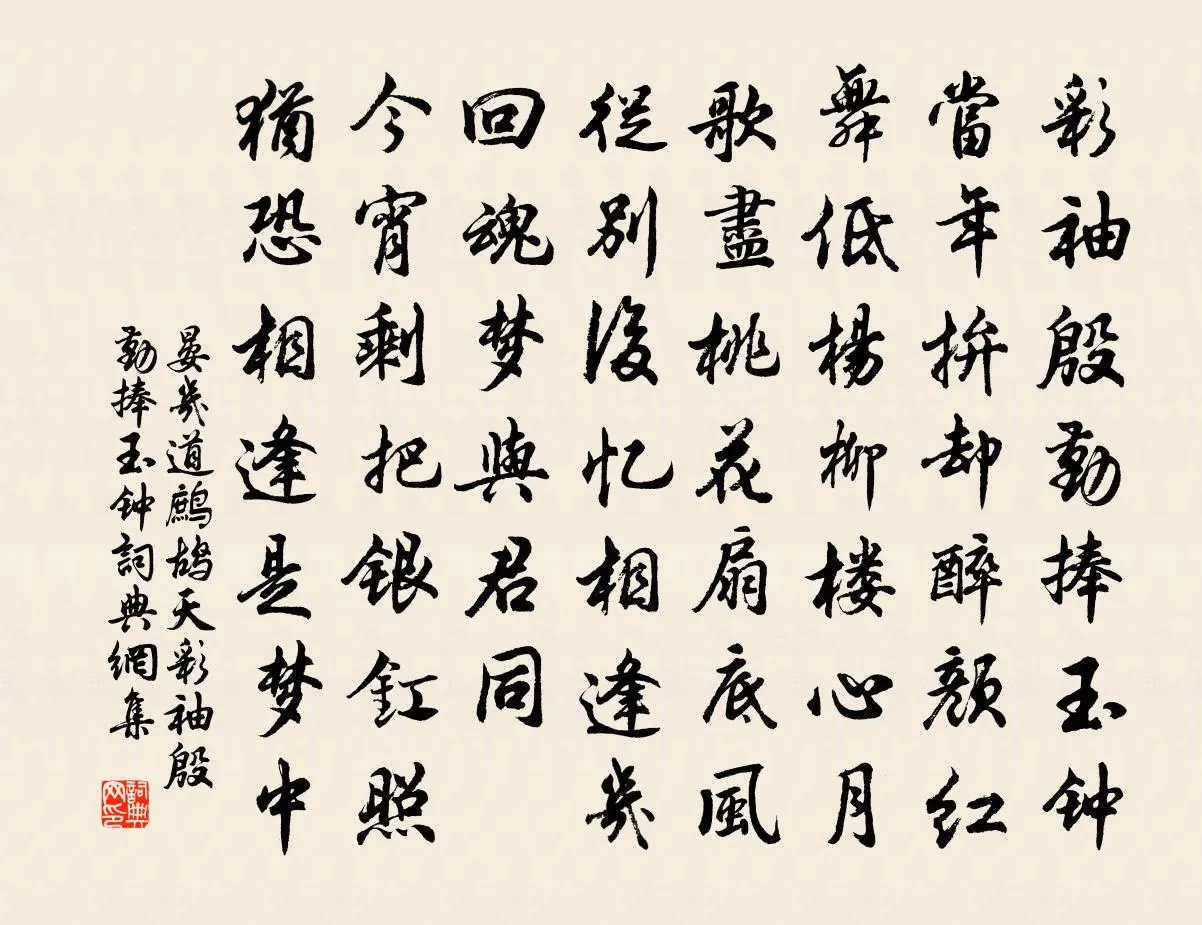 彩袖殷勤捧玉钟
當年拚却醉顔红
舞低楊柳楼心月
歌盡桃花扇底風
從别後忆相逢幾
回魂梦與君同
今宵剩把銀釭照
猶恐相逢是梦中
晏幾道鷓鴣天彩袖殷
勤捧玉钟詞典網集
詞典
网印